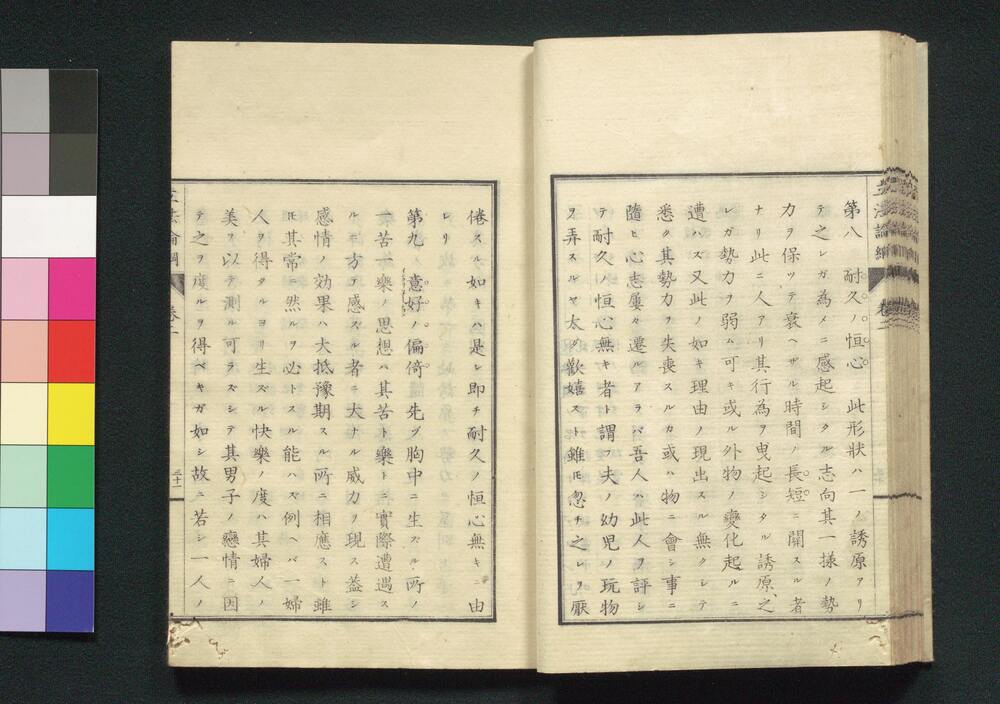 立法論綱 卷二
第八 耐久ノ恒心 此形狀ハ一ノ誘原アリ
テ之レガ為メニ感起シタル志向其一樣ノ勢
力ヲ保ツテ衰ヘザル時間ノ長短ニ關スル者
ナリ此ニ人アリ其行為ヲ曳起シタル誘原之
レガ勢力ヲ弱ハ可キ或ル外物ノ變化起ルニ
遭ハズ又此ノ如キ理由ノ現出スル無クシテ
悉ク其勢力ヲ失喪スルカ或ハ物ニ會シ事ニ
隨ヒ心志屢々遷ルアラバ吾人ハ此人ヲ評シ
テ耐久ノ恒心無キ者ト謂フ夫ノ幼児ノ玩物
ヲ弄スルヤ太ダ歡嬉スト雖𪜈忽チ之レヲ厭
倦スル如キハ是レ即チ耐久ノ恒心無キニ由
レリ
第九 意好ノ偏倚 先ヅ胸中ニ生ズル所ノ
一苦一樂ノ思想ハ其苦ト樂トニ實際遭遇ス
ルニ方テ感ズル者ニ大ナル威力ヲ現ス蓋シ
感情ノ効果ハ大抵豫期スル所ニ相應スト雖
𪜈其常ニ然ルヲ必トスル能ハズ例ヘバ一婦
人ヲ得タルヨリ生ズル快樂ノ度ハ其婦人ノ
美ヲ以テ測ル可ラズシテ其男子ノ戀情ニ因
テ之ヲ度ルヲ得ベキガ如シ故ニ若シ一人ノ
立法論綱 卷二 三十一